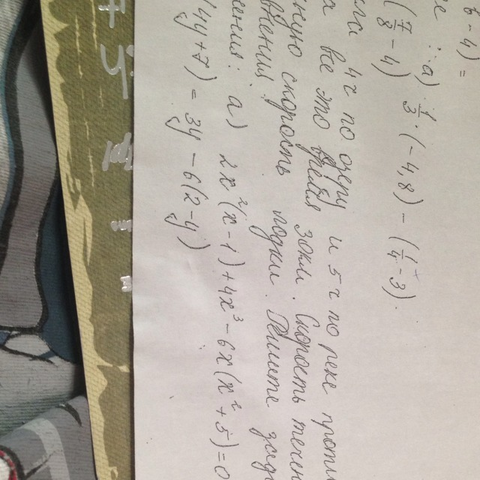 б - 4) =
: а) 1/3 · (-4,8) - (1/4 - 3).
(7/8 - 4)
4ч по озеру и 5ч по реке против
все это время 30км. Скорость течен
скорость лодки. Решите зада
а) 2x²(x - 1) + 4x³ - 6x(x² + 5) = 0
4y + 7) = 3y - 6(2 - y)